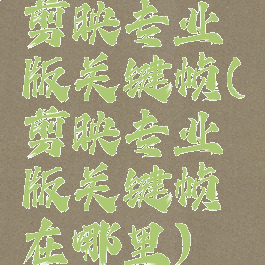 剪映专业
版关键帧(
剪映专业
版关键帧
在哪里)